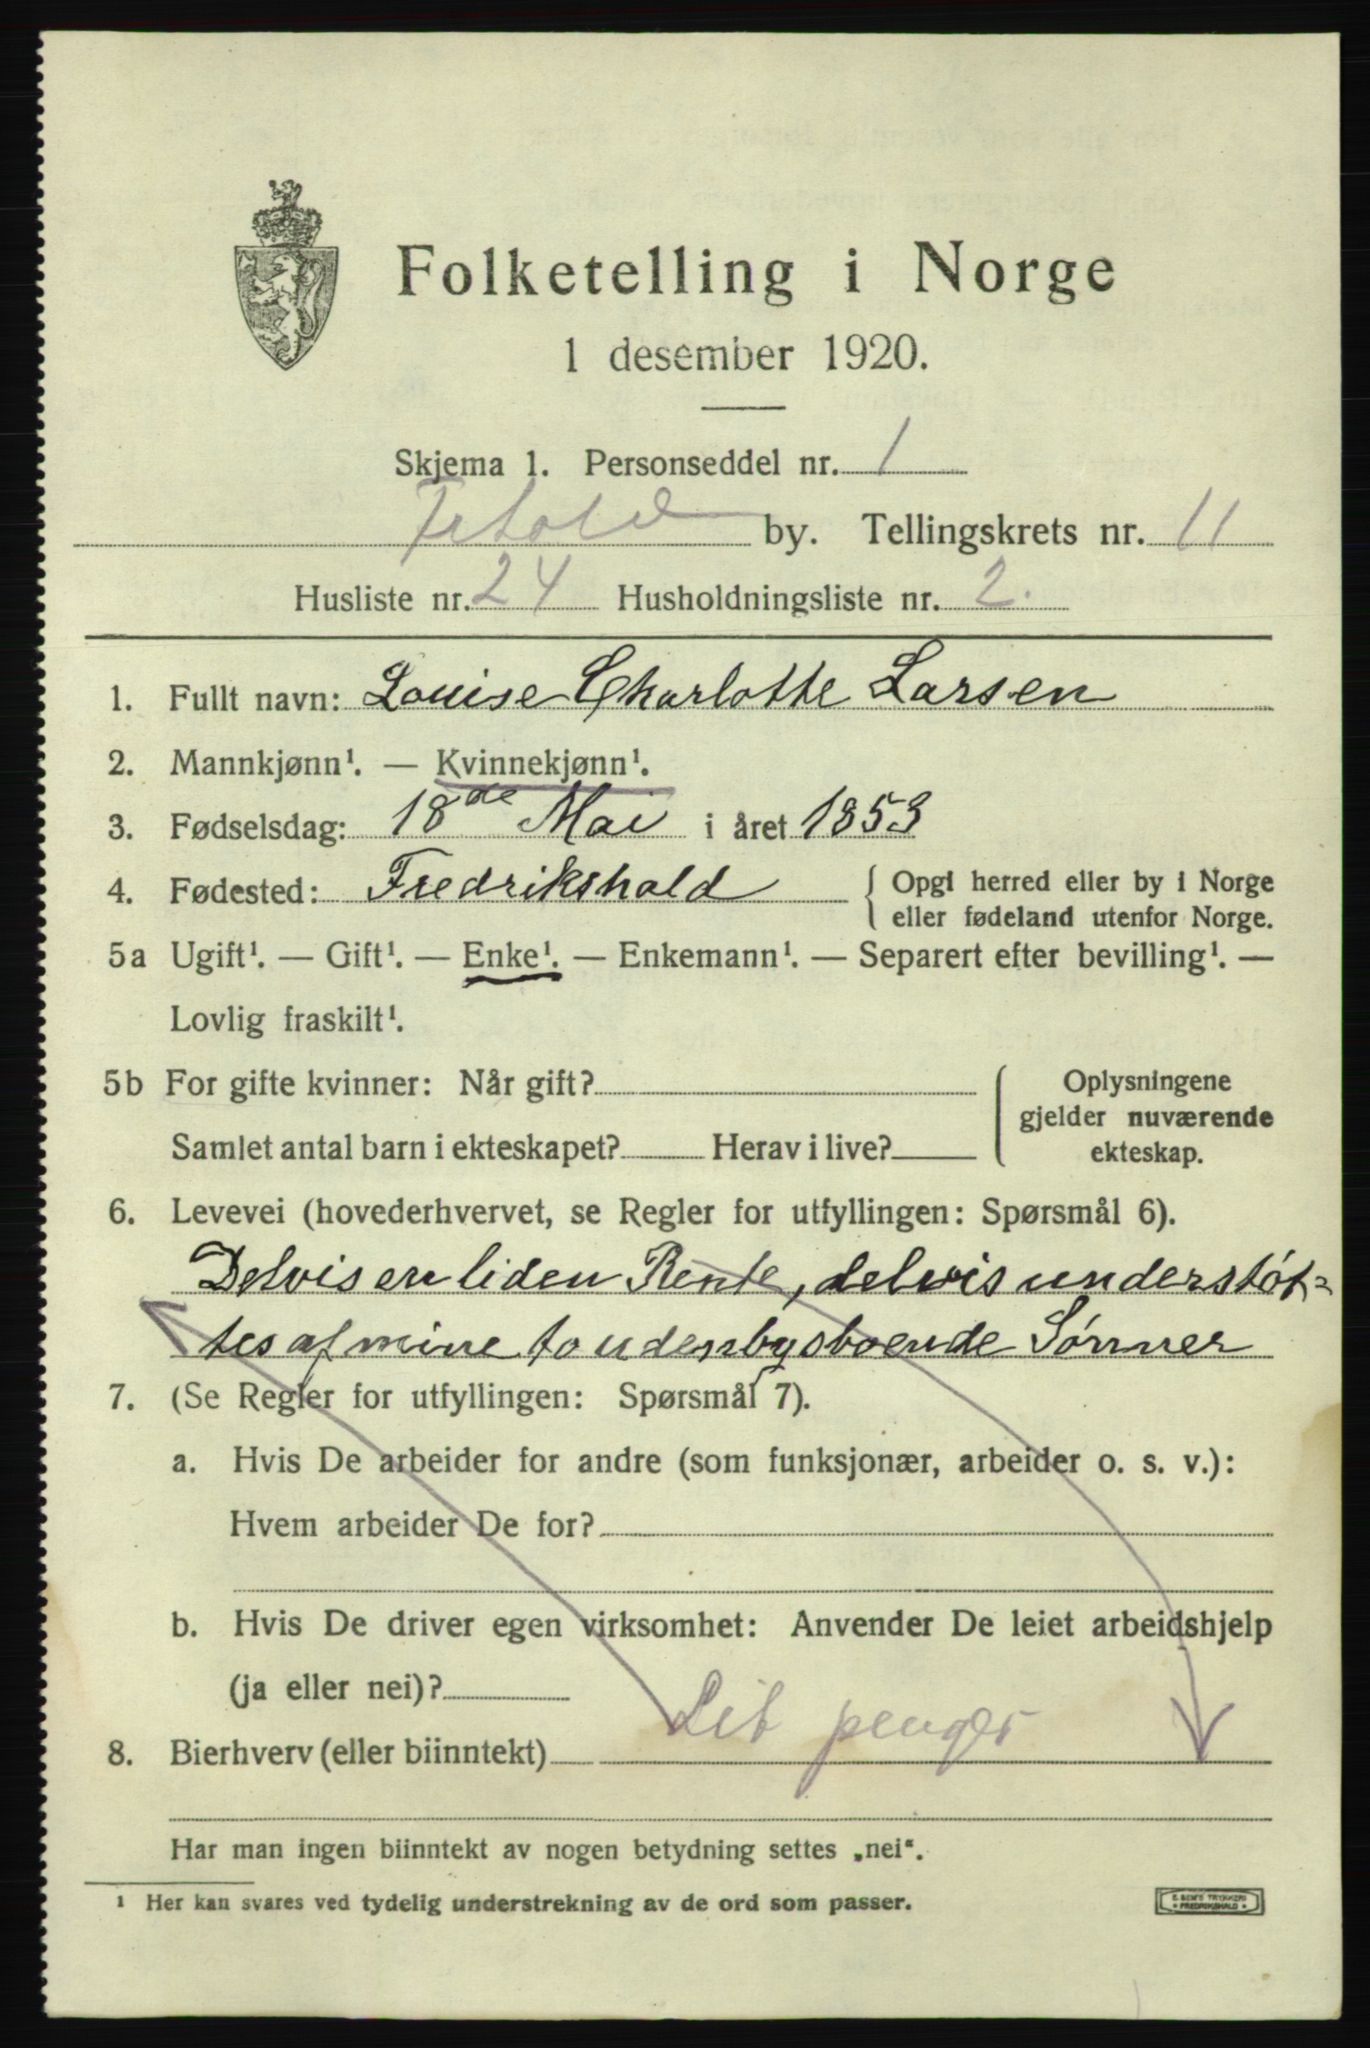 Folketelling i Norge
1 desember 1920.
Skjema 1. Personseddel nr. 1
Frhald by. Tellingskrets nr. 11
Husliste nr. 24 Husholdningsliste nr. 2.
1. Fullt navn: Louise Charlotte Larsen
2. Mannkjønn¹. — Kvinnekjønn¹.
3. Fødselsdag: 18de Mai i året 1853
4. Fødested: Fredrikshald { Opgi herred eller by i Norge
eller fødeland utenfor Norge.
5a Ugift¹. — Gift¹. — Enke¹. — Enkemann¹. — Separert efter bevilling¹. —
Lovlig fraskilt¹.
5b For gifte kvinner: Når gift?
Samlet antal barn i ekteskapet? Herav i live?
Oplysningene
gjelder nuværende
ekteskap.
6. Levevei (hovederhvervet, se Regler for utfyllingen: Spørsmål 6).
Delvis en liden Rente, delvis understøt-
tes af mine to udenbysboende Sønner
7. (Se Regler for utfyllingen: Spørsmål 7).
a. Hvis De arbeider for andre (som funksjonær, arbeider o. s. v.):
Hvem arbeider De for?
b. Hvis De driver egen virksomhet: Anvender De leiet arbeidshjelp
(ja eller nei)?
8. Bierhverv (eller biinntekt) penger
Har man ingen biinntekt av nogen betydning settes „nei“.
¹ Her kan svares ved tydelig understrekning av de ord som passer.
E. SEM'S TRYKKERI
FREDRIKSHALD